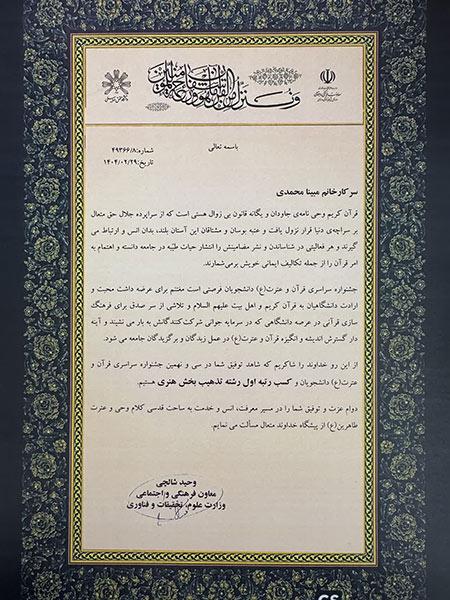 وننزل من القرآن ما هو شفاء ورحمة للمؤمنین
باسمه تعالی
شماره:۴۹۳۶۶/۸
تاریخ:۱۴۰۴/۰۲/۲۹
سرکارخانم مبینا محمدی
قرآن کریم وحی نامه‌ی جاودان و یگانه قانون بی زوال هستی است که از سراپرده جلال حق متعال
بر سراچه‌ی دنیا فراز نزول یافت و عتبه بوسان و مشتاقان این آستان بلند، بدان انس و ارتباط می
گیرند و هر فعالیتی در شناساندن و نشر مضامینش را انتشار حیات طیبه در جامعه دانسته و اهتمام به
امر قرآن را از جمله تکالیف ایمانی خویش برمی‌شمارند.
جشنواره سراسری قرآن و عترت(ع) دانشجویان فرصتی است مغتنم برای عرضه داشت محبت و
ارادت دانشگاهیان به قرآن کریم و اهل بیت علیهم السلام و تلاشی از سر صدق برای فرهنگ
سازی قرآنی در عرصه دانشگاهی که در سرمایه جوانی شرکت‌کنندگانش به بار می نشیند و آینه
دار گسترش اندیشه و انگیزه قرآن و عترت(ع) در عمل زبدگان و برگزیدگان جامعه می شود.
از این رو خداوند را شاکریم که شاهد توفیق شما در سی و نهمین جشنواره سراسری قرآن و
عترت(ع) دانشجویان و کسب رتبه اول رشته تذهیب بخش هنری هستیم.
دوام عزت و توفیق شما را در مسیر معرفت، انس و خدمت به ساحت قدسی کلام وحی و عترت
طاهرین(ع) از پیشگاه خداوند متعال مسألت می نمایم.
وحید شالچی
معاون فرهنگی و اجتماعی
وزارت علوم، تحقیقات و فناوری